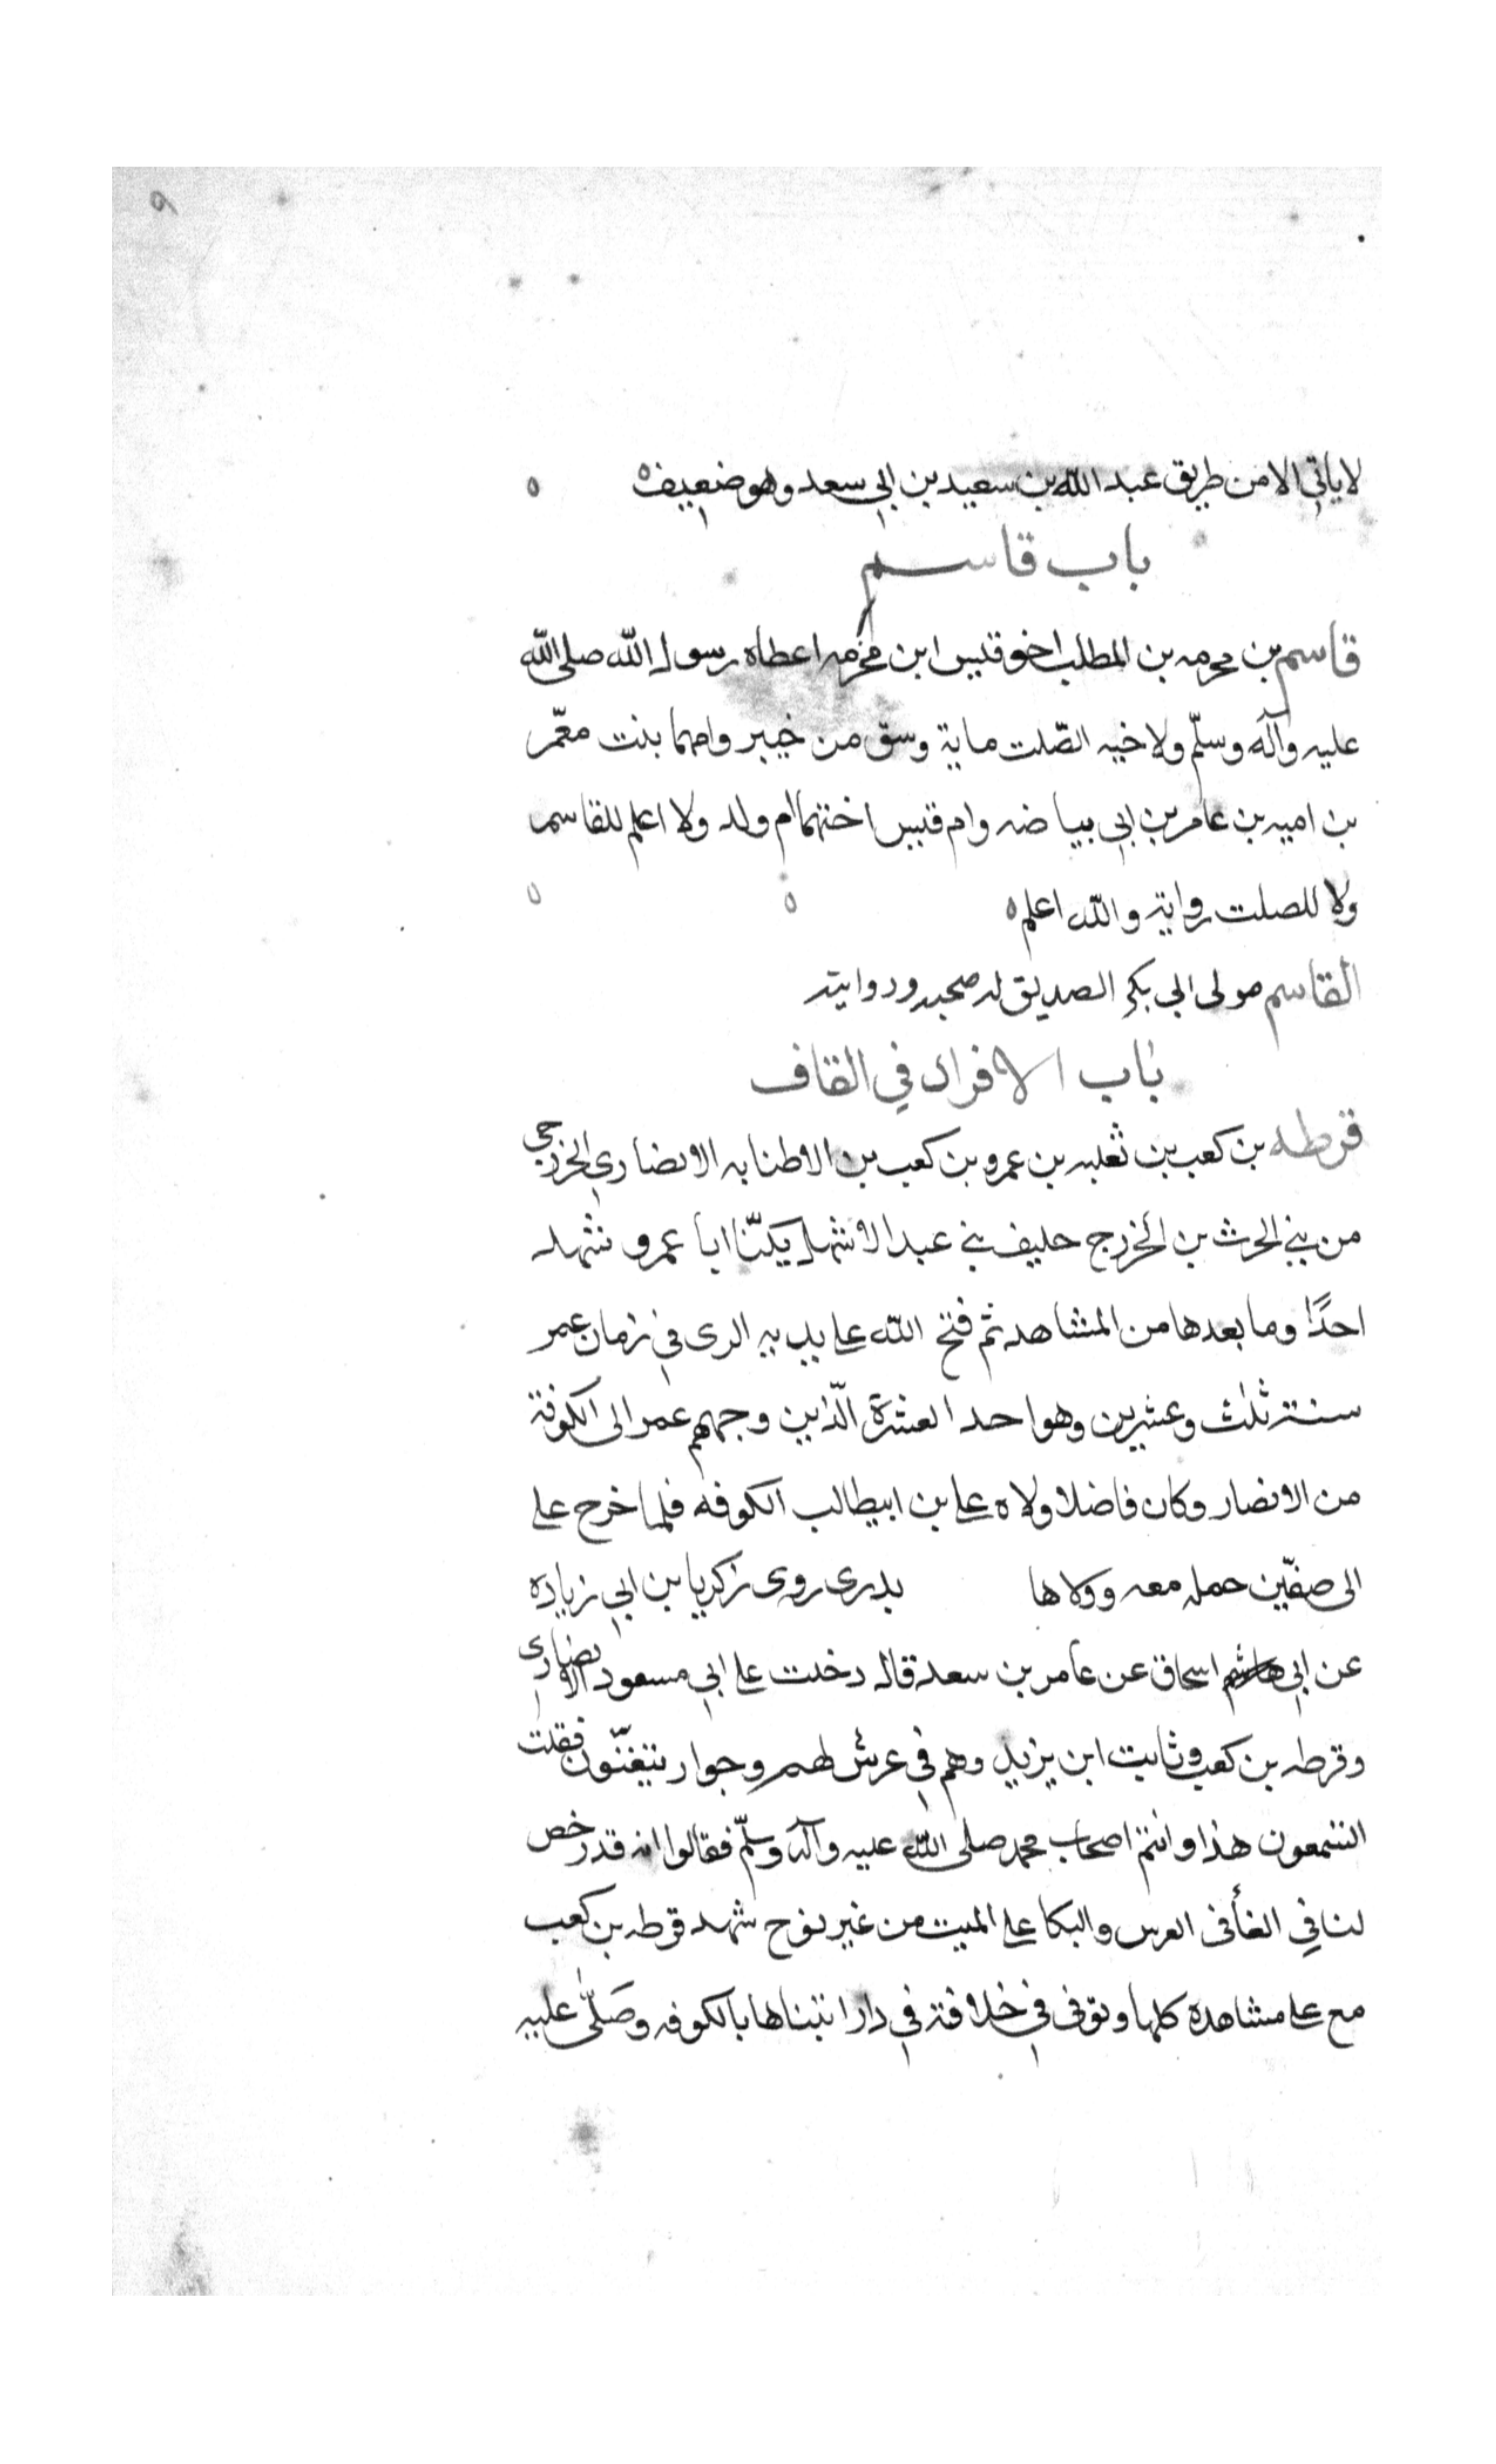 ٩
لا ياتي الا من طريق عبد الله بن سعيد بن ابي سعد وهو ضعيف ه ه
باب قاسم
قاسم بن مخرمه بن المطلب اخو قيس ابن مخرمه اعطاه رسول الله صلى الله
عليه وآله وسلّم ولاخيه الصّلت ماية وسق من خيبر وامهما بنت معّمر
بن اميه بن عامر بن ابي بياضه وام قيس اختهما ام ولد ولا اعلم للقاسم
ولا للصلت رواية والله اعلم ه ه ه
القاسم مولى ابي بكر الصديق له صحبه وروايته
باب الافراد في القاف
قرظه بن كعب بن ثعلبه بن عمرو بن كعب بن الاطنابه الانصاري الخزرجي
من بني الحرث بن الخزرج حليف بني عبد الاشهل يكنّا ابا عمرو شهد
احدًا وما بعدها من المشاهد ثم فتح الله على يديه الرى في زمان عمر
سنة ثلث وعشرين وهو احد العشرة الّذين وجههم عمر الى الكوفة
من الانصار وكان فاضلا ولاه على بن ابيطالب الكوفه فلما خرج على
الى صفّين حمله معه وولاها بدرى روى زكريا بن ابي زياده
عن ابي اسحاق عن عامر بن سعد قال دخلت على ابي مسعود الانصارى
وقرظه بن كعب وثابت ابن يزيد وهم في عرش لهم وجوار يتغنّون فقلت
اتسمعون هذا وانتم اصحاب محمد صلى الله عليه وآله وسلّم فقالوا انه قد رخص
لنا في الغنأ في العرس والبكا على الميت من غير نوح شهد قرظه بن كعب
مع على مشاهده كلها وتوفى في خلافته في دار ابتناها بالكوفه وصَلّى عليه